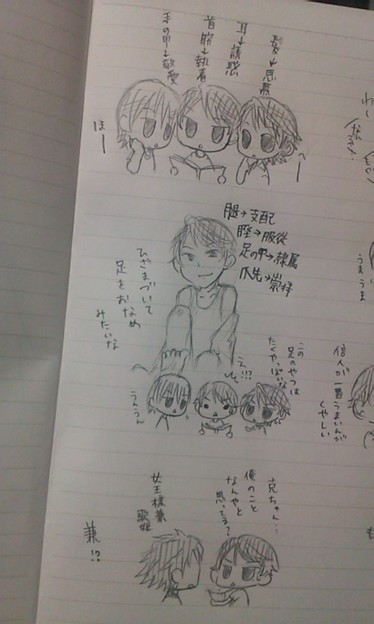 髪→思慕
耳→誘惑
首筋→執着
手の甲→敬愛
へー
ほー
わー
腿→支配
脛→服従
足の甲→隷属
爪先→崇拝
ひざまづいて
足をおなめ
みたいな
うまうま
え!?
この
足のやつは
たくやっぽいな
うんうん
信人が
一番うまいんが
くやしい
兄ちゃん…
俺のこと
なんやと
思ってる?
女王様兼
歌姫
兼!?
も